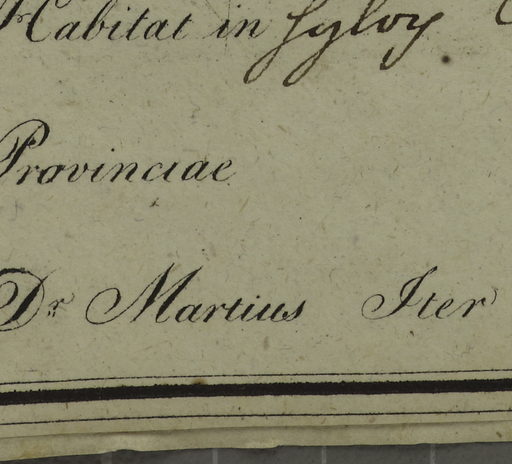 Habitat in sylvis
Provinciae
Dr. Martius Iter